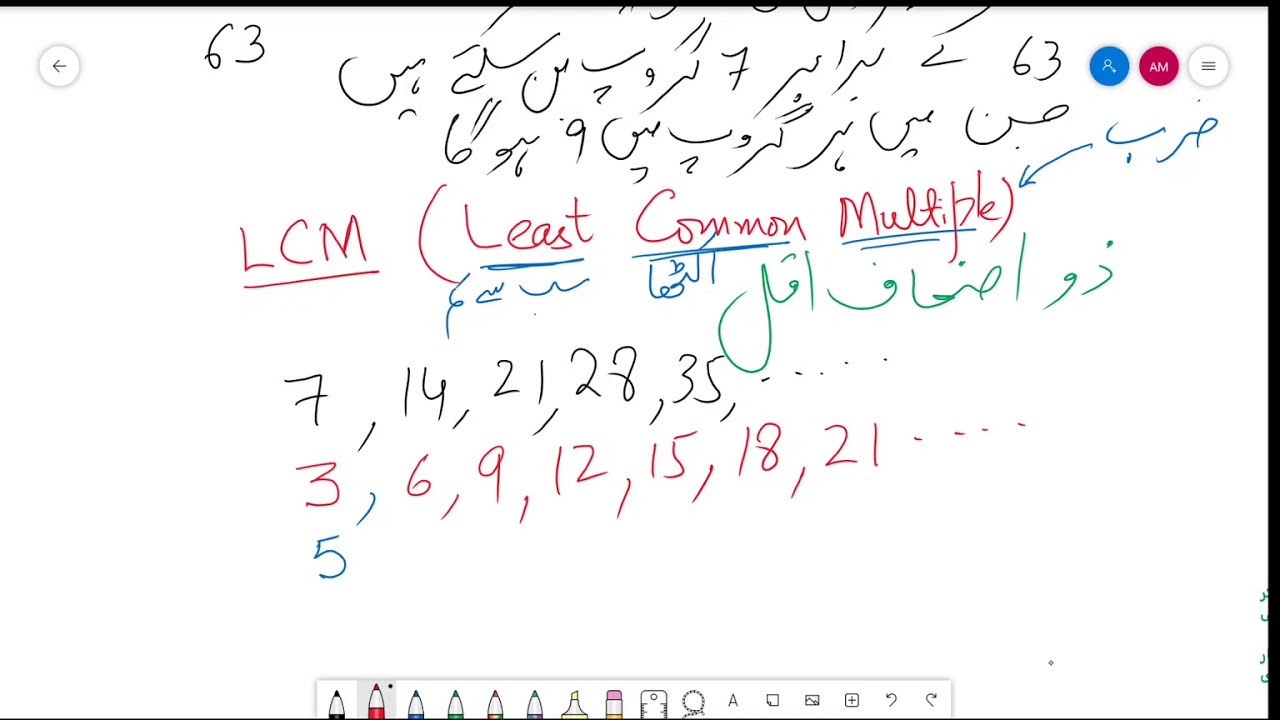 63 کے برابر 7 گروپ بن سکتے ہیں 63
جن میں ہر گروپ میں 9 ہوگا
ضرب
AM
LCM (Least Common Multiple)
سب سے کم اکٹھا
ذو اضعاف اقل
7, 14, 21, 28, 35, .....
3, 6, 9, 12, 15, 18, 21 ....
5
A